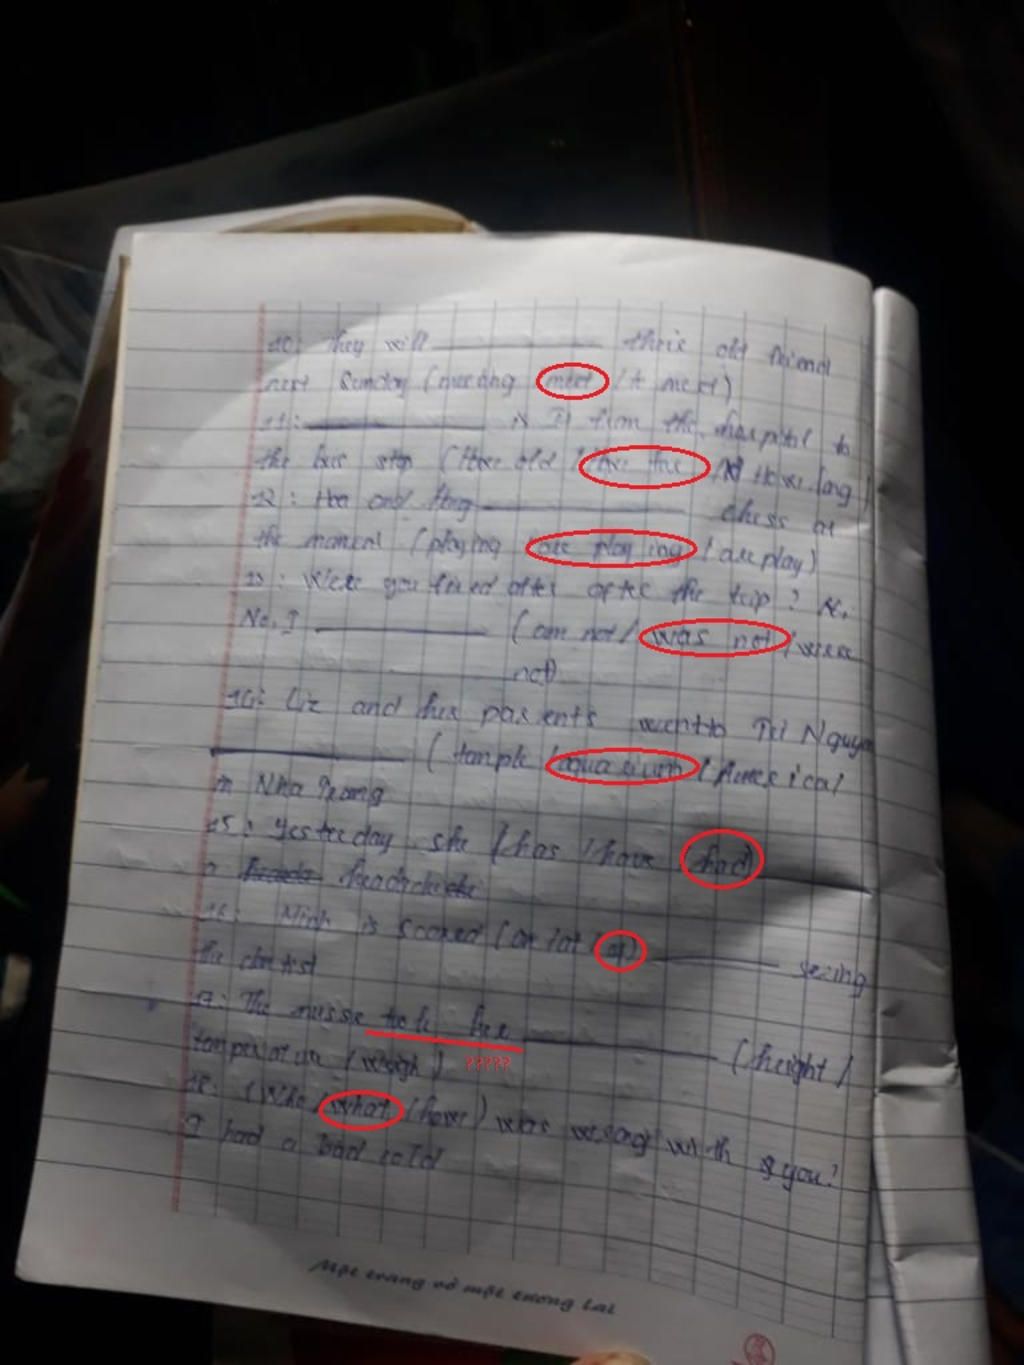 10: They will ________ their old friend
next Sunday (meeting / meet / to meet)
11: ________ is it from the hospital to
the bus stop (How old / How far / How long)
12: Hoa and ________ chess at
the moment (playing / are playing / are play)
13: Were you tired after after the trip?
No, I ________ (am not / was not / were
not)
14: Liz and her parents went to Tri Nguyen
________ (temple / aquarium /
in Nha Trang
15: Yesterday she (has / have / had)
a headache
16: Minh is scared (on / at / of) ________ seeing
the dentist
17: The nurse took her ________ (height /
temperature / weigh) ?????
18: (Who / what / how) was wrong with you?
I had a bad cold
Một trang vở một tương lai